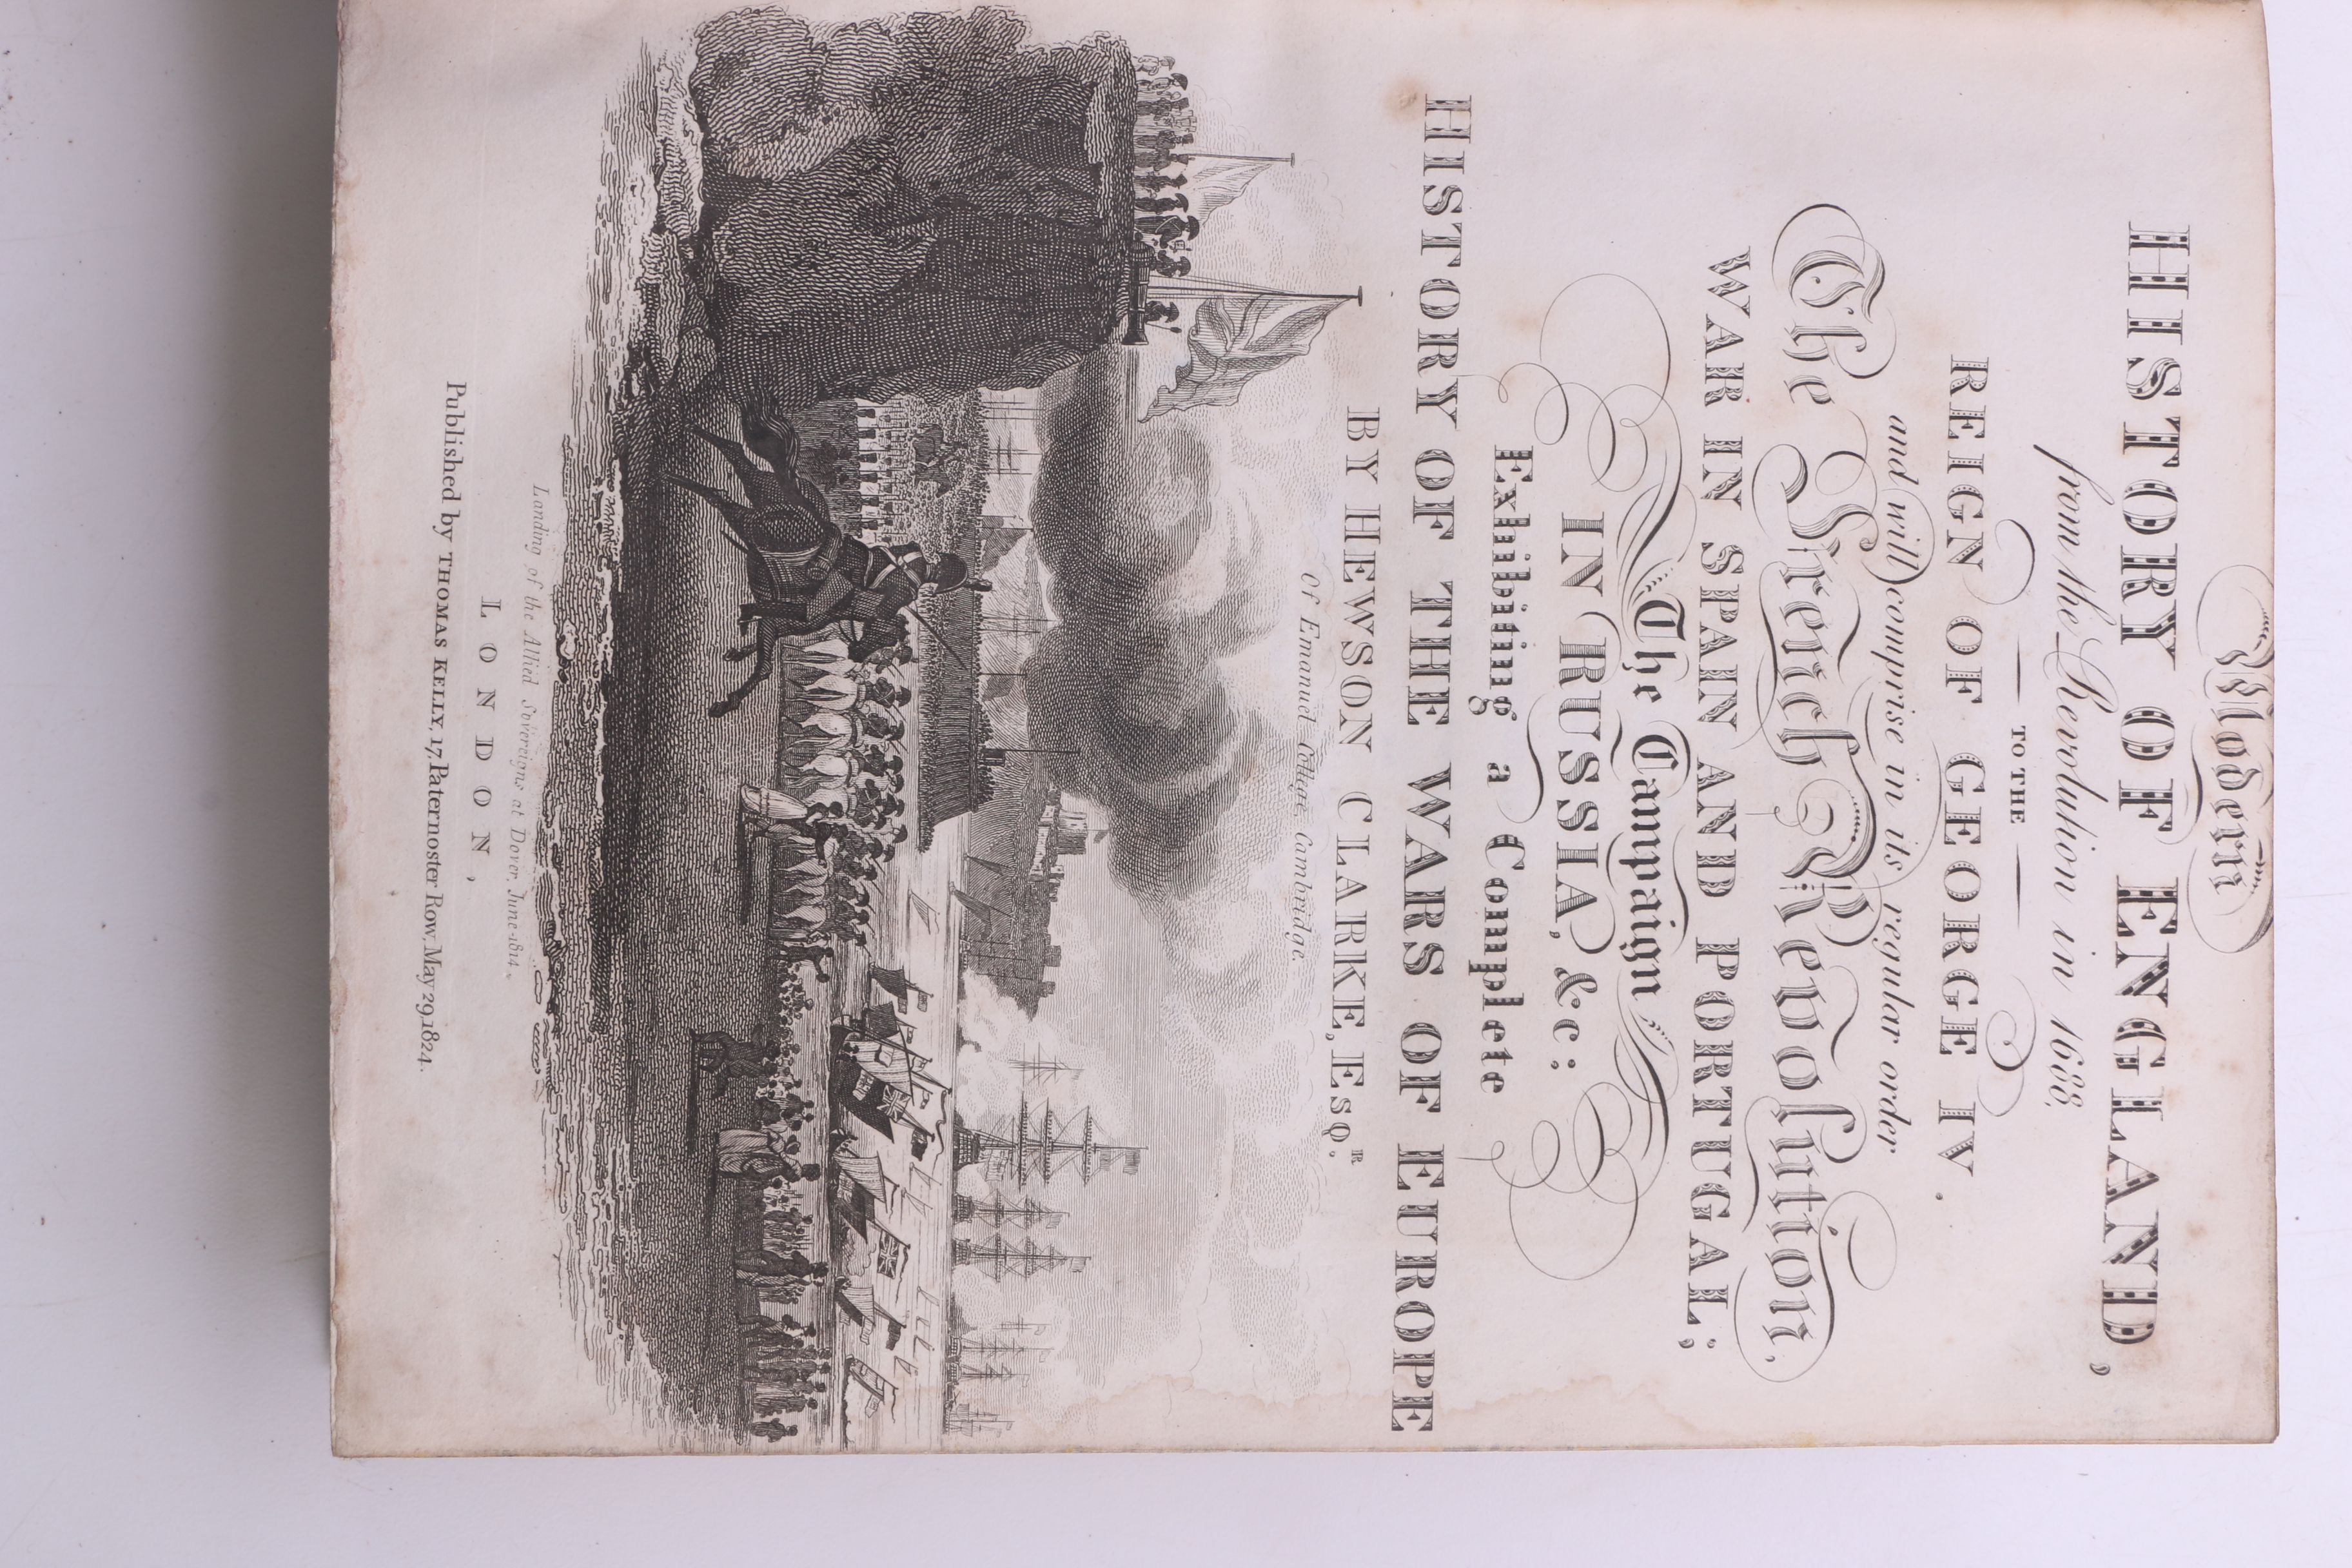 Modern
HISTORY OF ENGLAND,
from the Revolution in 1688,
TO THE
REIGN OF GEORGE IV.
and will comprise in its regular order
The French Revolution,
WAR IN SPAIN AND PORTUGAL;
The Campaign
IN RUSSIA, &c:
Exhibiting a Complete
HISTORY OF THE WARS OF EUROPE
BY HEWSON CLARKE, ESQR.
Of Emanuel College, Cambridge.
Landing of the Allied Sovereigns at Dover, June 1814.
LONDON,
Published by THOMAS KELLY, 17, Paternoster Row, May 29, 1824.